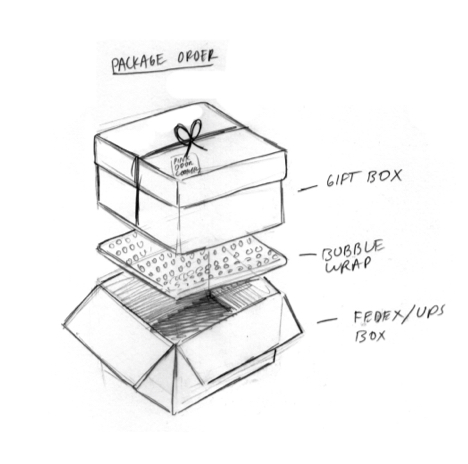 PACKAGE ORDER
PINK
DOOR
GIFT BOX
BUBBLE
WRAP
FEDEX/UPS
BOX